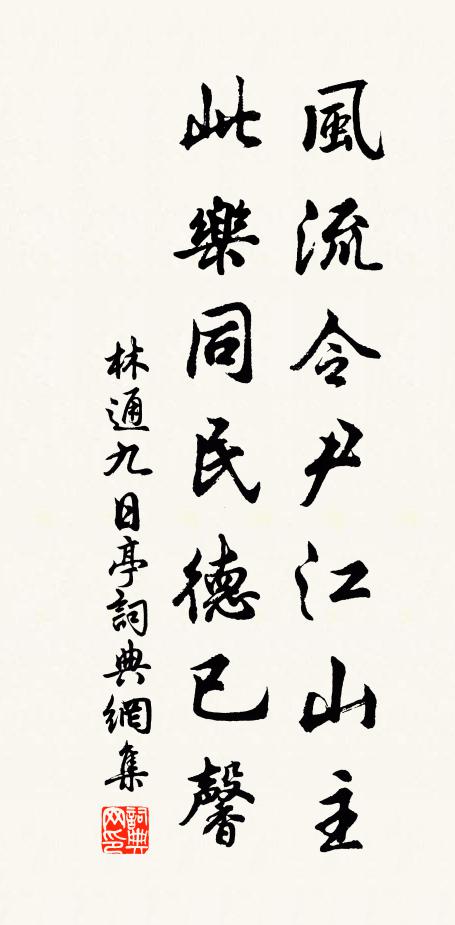 風流令尹江山主
此樂同民德已馨
林通九日亭詞典網集
詞典网印